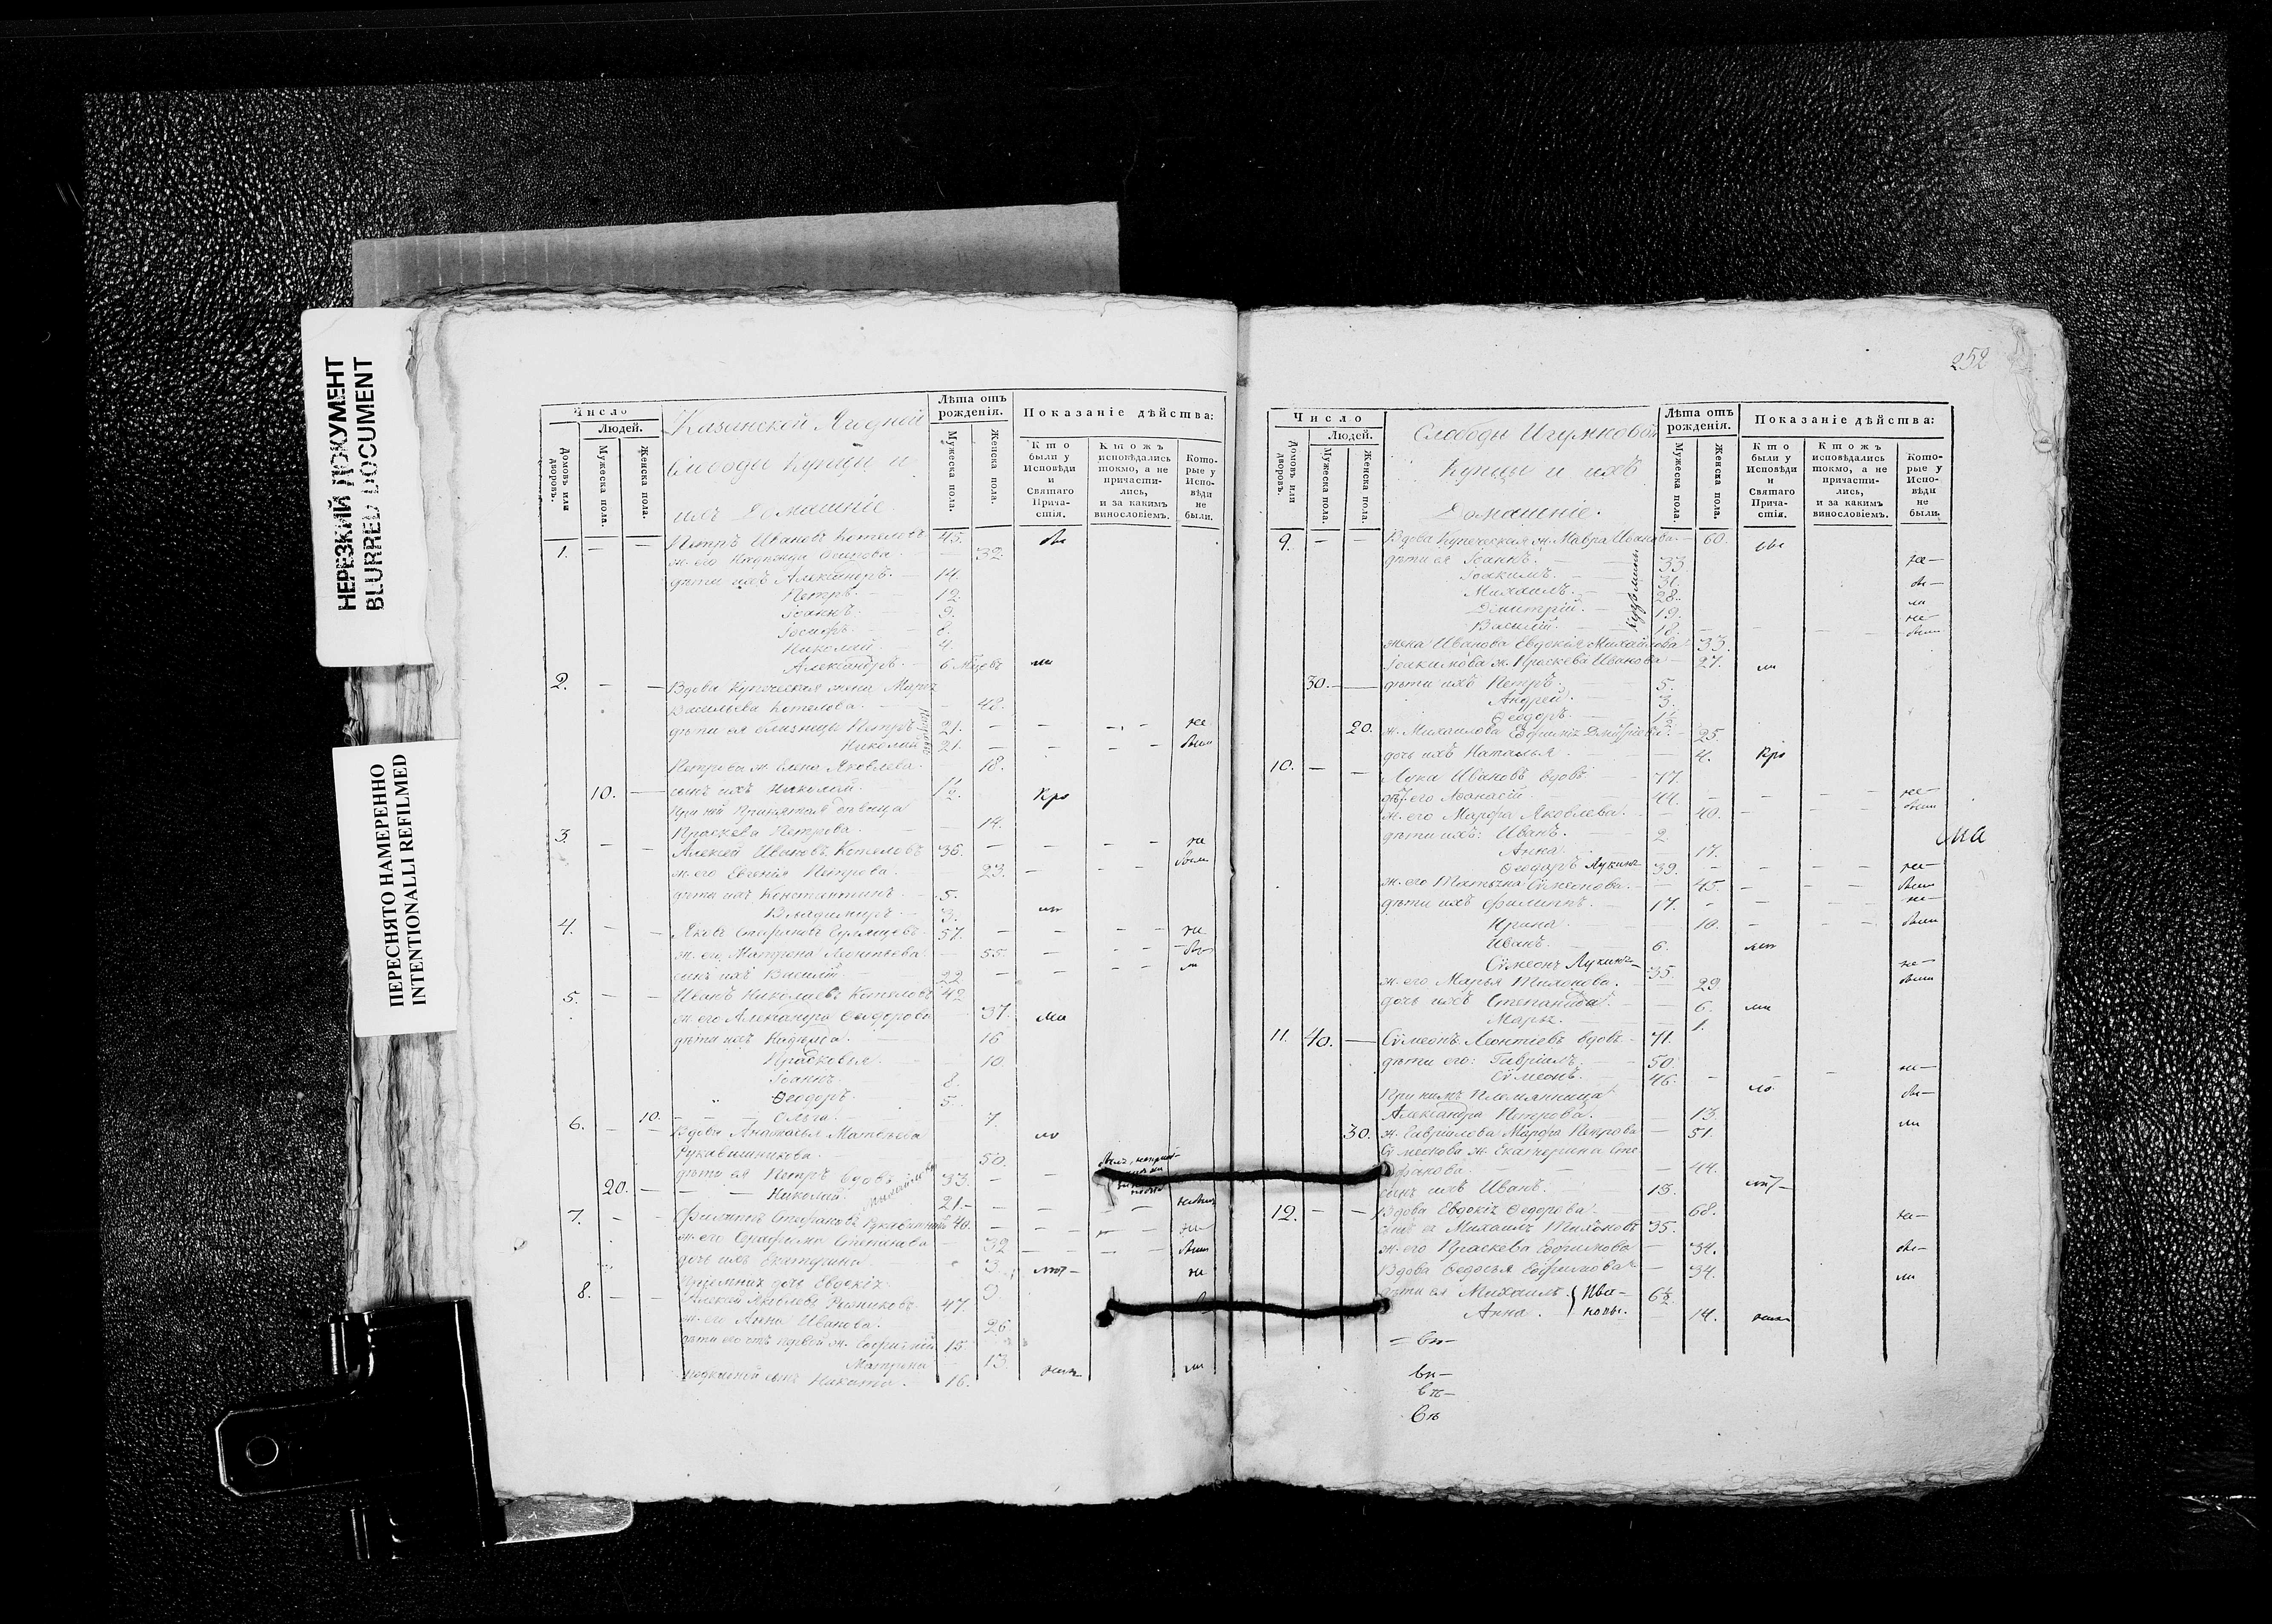 НЕРЕЗКИЙ ДОКУМЕНТ
BLURRED DOCUMENT
ПЕРЕСНЯТО НАМЕРЕННО
INTENTIONALLI REFILMED
Число
Людей.
Домовъ или дворовъ.
Мужеска пола.
Женска пола.
Слободы Купцы и
ихъ Домашніе.
Лѣта отъ рожденія.
Мужеска пола.
Женска пола.
Показаніе дѣйства:
Кто были у Исповѣди и Святаго Причастія.
Ктожъ исповѣдались токмо, а не причастились, и за какимъ винословіемъ.
Которые у Исповѣди не были.
1. Петръ Ивановъ Котеловъ 45.
ж. его Надежда 32
дѣти ихъ Александръ. 14.
Петръ. 12.
Іоаннъ. 9.
Іосифъ. 8.
Николай 4.
Александръ. 6 мѣсяцъ
2. Вдова Купеческая жена Марья
Васильева Котелова. 48.
дѣти ея близнецы Петръ 21.
Николай 21.
Петрова ж. Елена Яковлева. 18.
10. сынъ ихъ Николай. 1½
При ней девица
Праскева Петрова. 14.
3. Алексей Ивановъ Котеловъ 36.
ж. его Евгенія Петрова. 23.
дѣти ихъ Константинъ 5.
Владимиръ 3.
4. Яковъ Стефановъ 57.
ж. его Матрена Леонтьева. 55.
сынъ ихъ Василій 22
5. Иванъ Николаевъ Котеловъ 42
ж. его Александра Ѳеодорова 37.
дѣти ихъ Надежда. 16
Прасковья. 10.
Іоаннъ. 8.
Ѳеодоръ. 5.
10. Ольга. 7.
6. Вдова Анастасья Матвеева
Рукавишникова. 50.
дѣти ея Петръ вдовъ 33.
20. Николай. 21.
7. Филиппъ Стефановъ Рукавишниковъ 40.
ж. его Серафима Степанова 32
дочь ихъ Екатерина. 3.
дочь Евдокія. 9
8. Алексей Яковлевъ 47.
ж. его Анна Иванова. 26
дѣти его отъ первой ж. 15.
Матрена 13.
сынъ Никита. 16.
252
Число
Людей.
Домовъ или дворовъ.
Мужеска пола.
Женска пола.
Слободы Игумновой
Купцы и ихъ
Домашніе.
Лѣта отъ рожденія.
Мужеска пола.
Женска пола.
Показаніе дѣйства:
Кто были у Исповѣди и Святаго Причастія.
Ктожъ исповѣдались токмо, а не причастились, и за какимъ винословіемъ.
Которые у Исповѣди не были.
9. Вдова Купеческая ж. Мавра Иванова. 60.
дѣти ея Іоаннъ. 33
Іоакимъ. 31.
Михаилъ. 28.
Димитрій. 19.
Василій. 18.
жена Иванова Евдокія Михайлова 33.
Іоакимова ж. Праскева Иванова 27.
30. дѣти ихъ Петръ. 5.
Андрей. 3.
Ѳеодоръ. 1½
20. ж. Михаилова Дмитріева. 25.
дочь ихъ Наталья 4.
10. Лука Ивановъ вдовъ 77.
его Аѳанасій 44.
ж. его Марфа Яковлева. 40.
дѣти ихъ: Иванъ. 2.
Анна. 17.
Ѳеодоръ Лукинъ 39.
ж. его Татьяна Сѵмеонова. 45.
дѣти ихъ Филиппъ. 17.
Ирина. 10.
Иванъ. 6.
Сѵмеонъ Лукинъ 35.
ж. его Марья Тихонова. 29
дочь ихъ Степанида 6.
Марья. 1.
11. 40. Сѵмеонъ Леонтіевъ вдовъ 71.
дѣти его: Гавріилъ. 50.
Сѵмеонъ. 46.
При нихъ Племянница
Александра Петрова. 13.
30. ж. Гавріилова Марфа Петрова 51.
Сѵмеонова ж. Екатерина Сте
фанова. 44.
сынъ ихъ Иванъ. 13.
12. Вдова Евдокія Ѳедорова. 68.
сынъ ея Михаилъ Тихоновъ 35.
ж. его Праскева Ефимова 34.
Вдова Ѳедосья Ефимова 34.
дѣти ея Михаилъ 6½
Анна. 14.